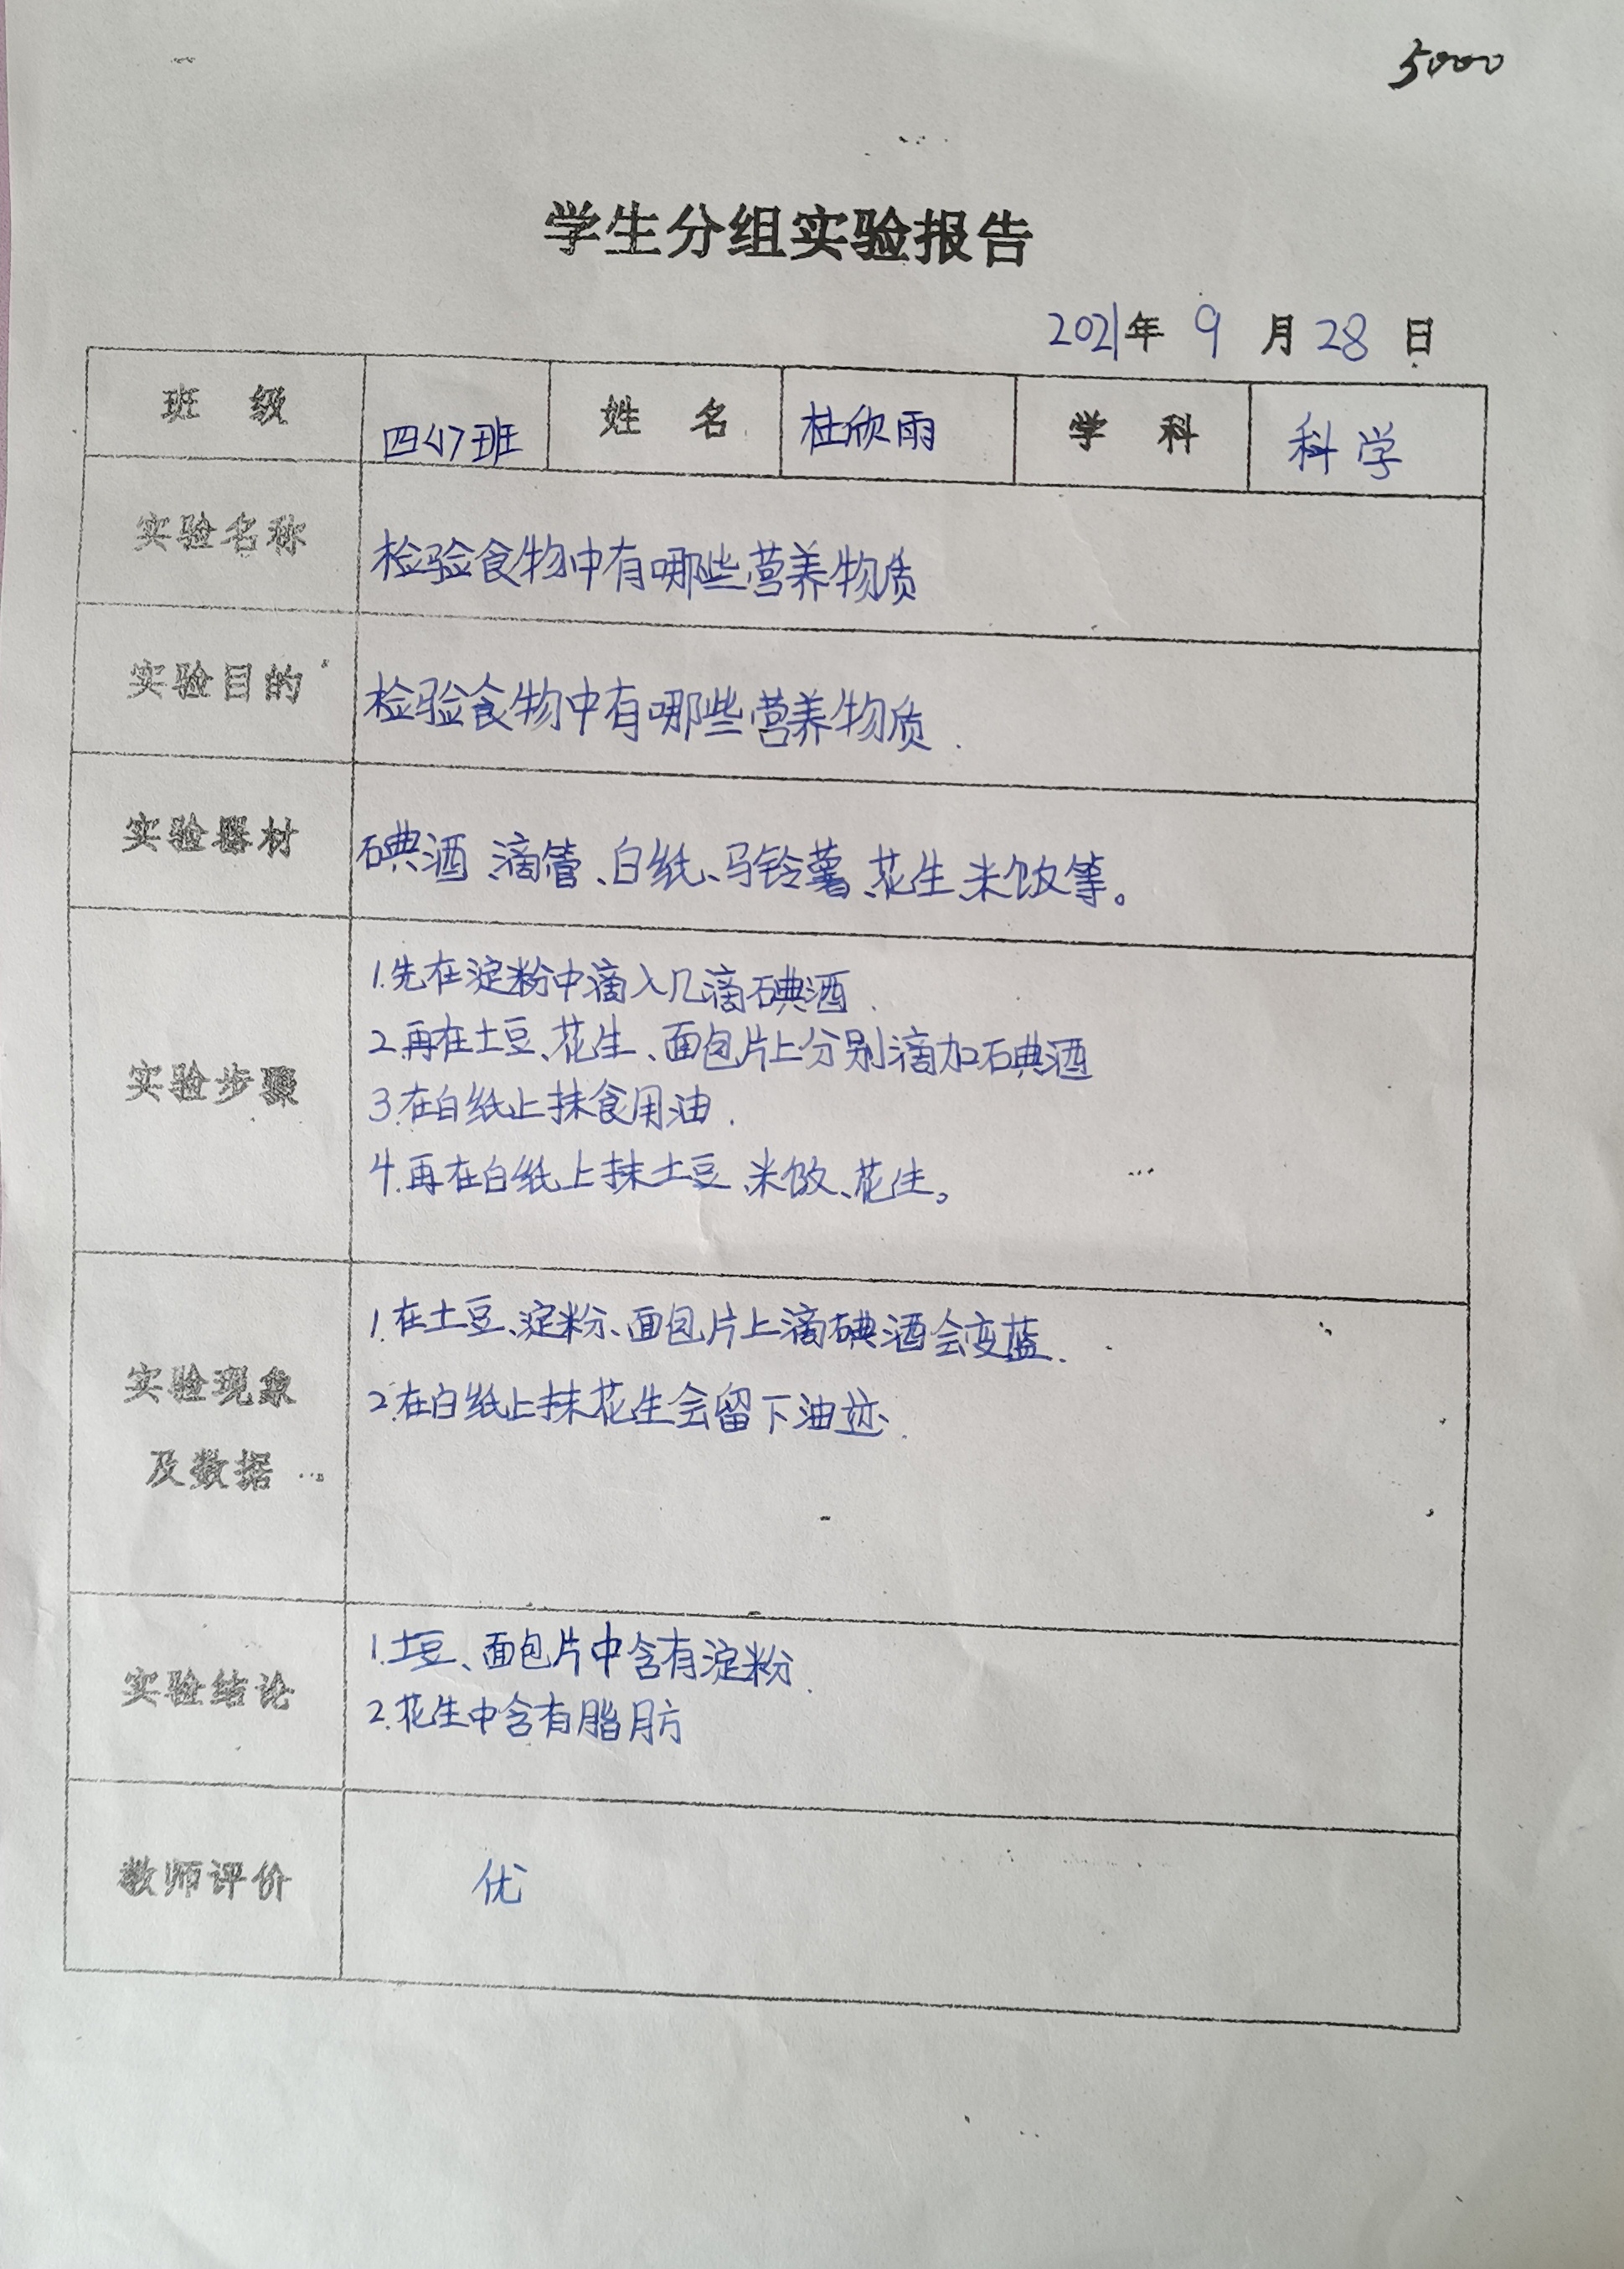 5000
学生分组实验报告
2021年 9 月 28 日
班 级 四(1)班 姓 名 杜欣雨 学 科 科学
实验名称 检验食物中有哪些营养物质
实验目的 检验食物中有哪些营养物质.
实验器材 碘酒、滴管、白纸、马铃薯、花生、米饭等。
实验步骤
1.先在淀粉中滴入几滴碘酒.
2.再在土豆、花生、面包片上分别滴加碘酒
3.在白纸上抹食用油.
4.再在白纸上抹土豆、米饭、花生。
实验现象
及数据
1.在土豆、淀粉、面包片上滴碘酒会变蓝.
2.在白纸上抹花生会留下油迹.
实验结论
1.土豆、面包片中含有淀粉.
2.花生中含有脂肪
教师评价 优